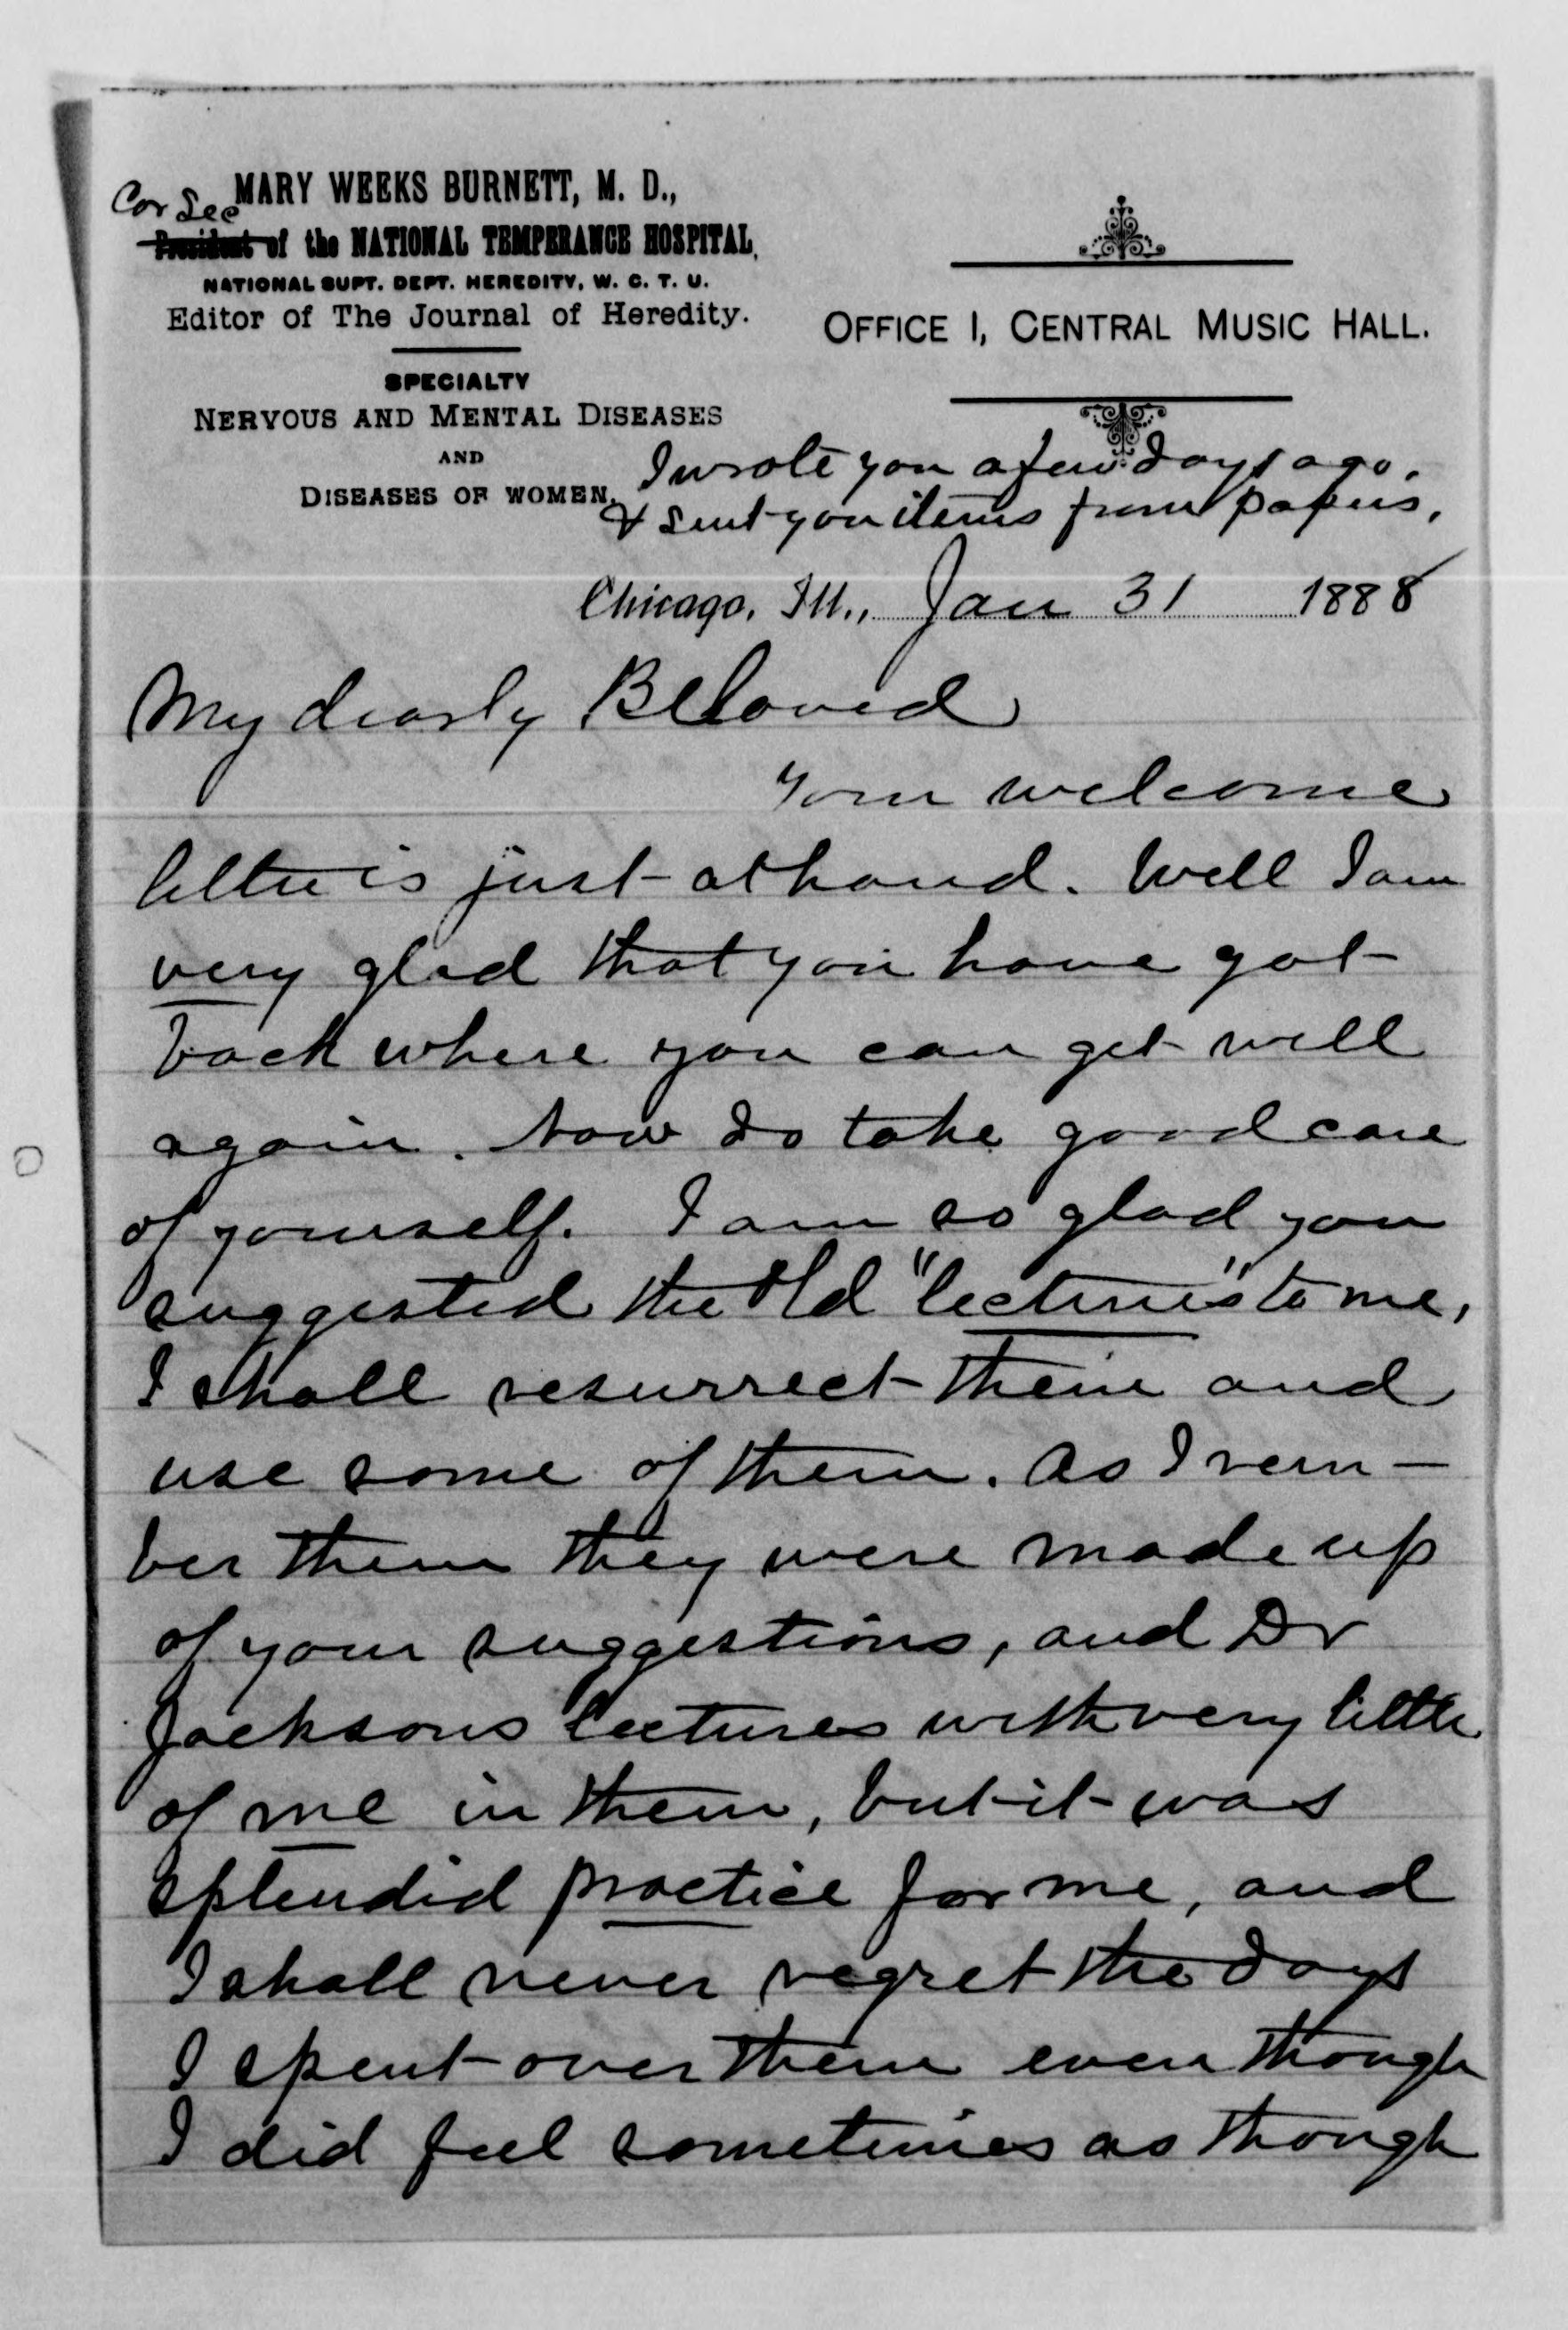 Cor Sec MARY WEEKS BURNETT, M. D.,
President of the NATIONAL TEMPERANCE HOSPITAL,
NATIONAL SUPT. DEPT. HEREDITY, W. C. T. U.
Editor of The Journal of Heredity.
SPECIALTY
NERVOUS AND MENTAL DISEASES
AND
DISEASES OF WOMEN.
OFFICE 1, CENTRAL MUSIC HALL.
I wrote you a few days ago.
& sent you items from papers.
Chicago, Ill., Jan 31 1888
My dearly Beloved
Your welcome
letter is just at hand. Well I am
very glad that you have got
back where you can get well
again. Now do take good care
of yourself. I am so glad you
suggested the old "lectures" to me,
I shall resurrect them and
use some of them. As I rem-
ber them they were made up
of your suggestions, and Dr
Jacksons lectures with very little
of me in them, but it was
splendid practice for me, and
I shall never regret the days
I spent over them even though
I did feel sometimes as though